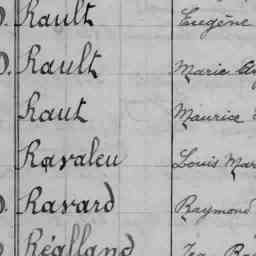 Rault Eugène
Rault Marie
Raut Maurice
Ravaleu Louis Mar
Ravard Raymond
Réalland